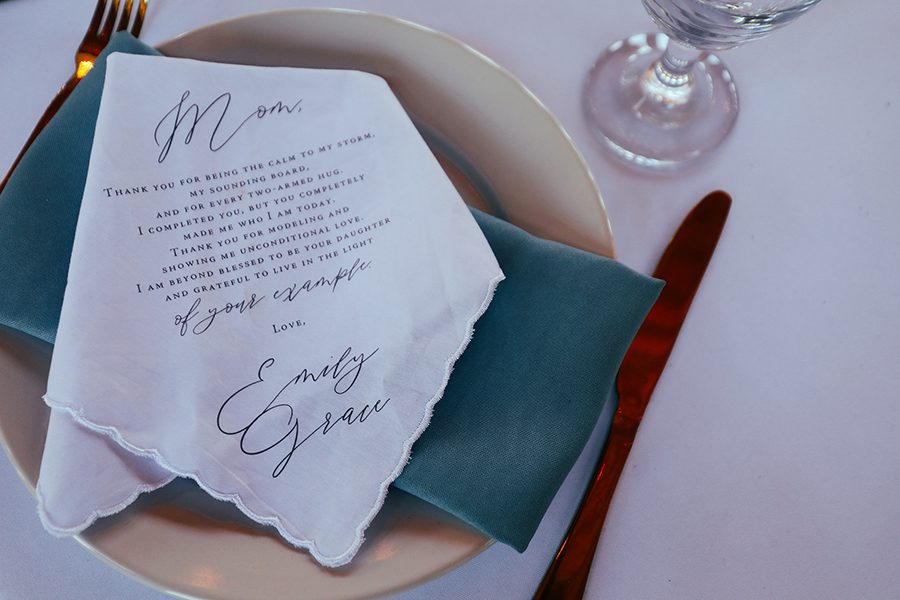 Mom,
Thank you for being the calm to my storm,
my sounding board,
and for every two-armed hug.
I completed you, but you completely
made me who I am today.
Thank you for modeling and
showing me unconditional love.
I am beyond blessed to be your daughter
and grateful to live in the light
of your example.
Love,
Emily
Grace